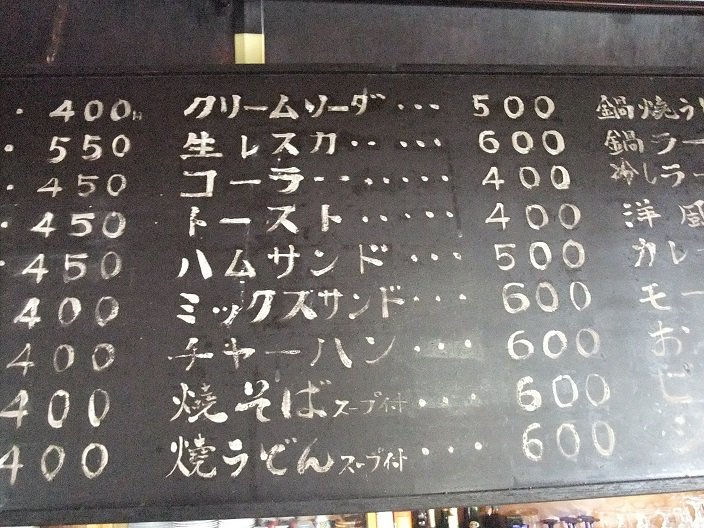 ・400円 クリームソーダ・・・500 鍋焼う
・550 生レスカ・・・・・600 鍋ラー
・450 コーラ・・・・・・・400 冷しラー
・450 トースト・・・・・400 洋風
・450 ハムサンド・・・・500 カレー
400 ミックスサンド・・・600 モー
400 チャーハン・・・・600 お
400 焼そばスープ付・・・・600 ビ
400 焼うどんスープ付・・・・600